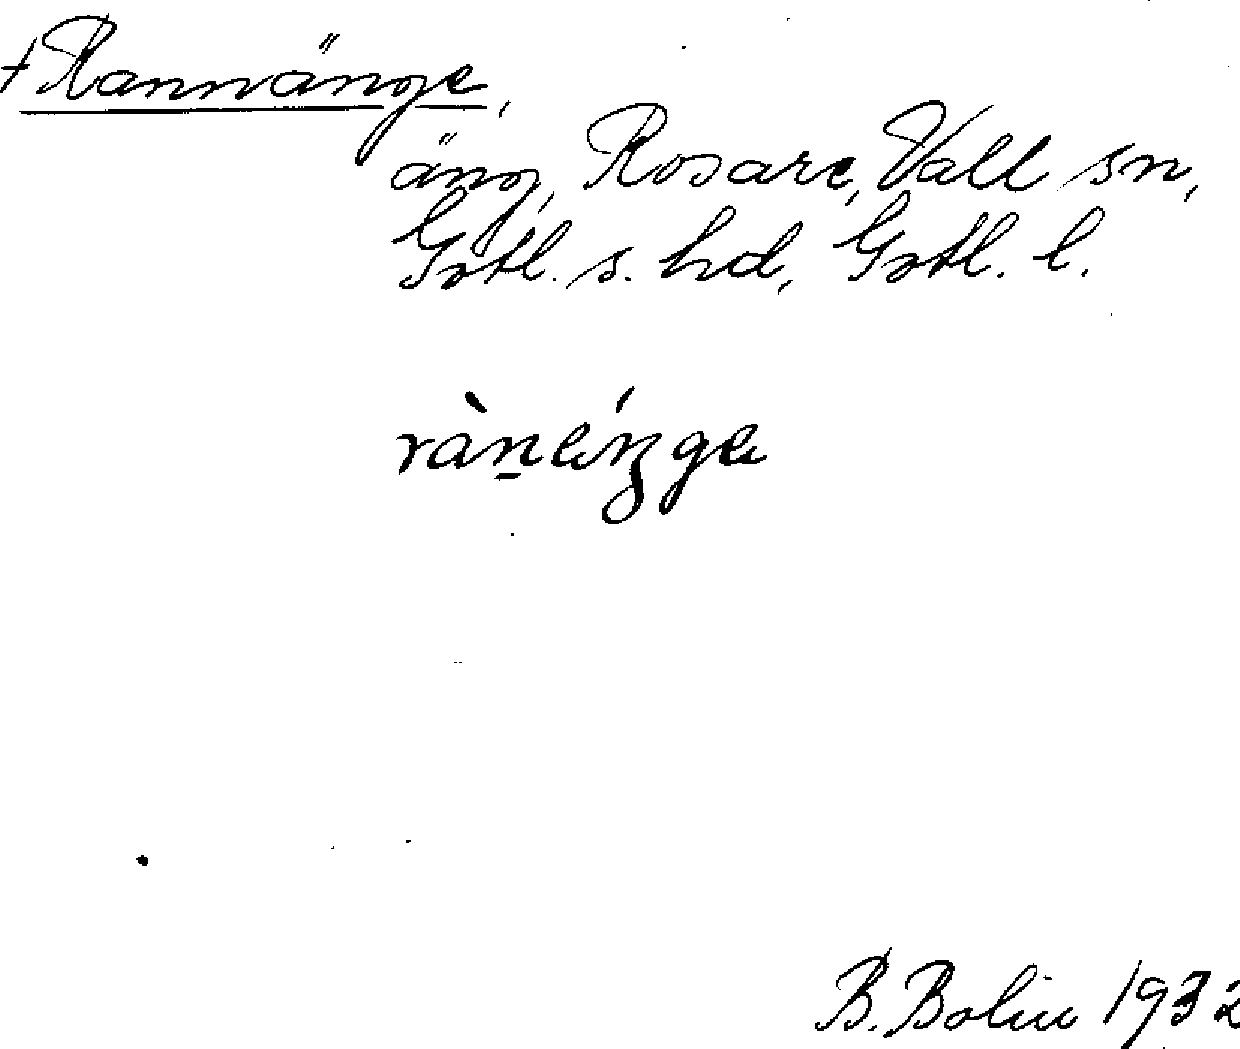 + Rannänge,
äng, Rosarve, Vall sn,
Gotl. s. hd, Gotl. l.
rànéŋge
B. Bolin 1932